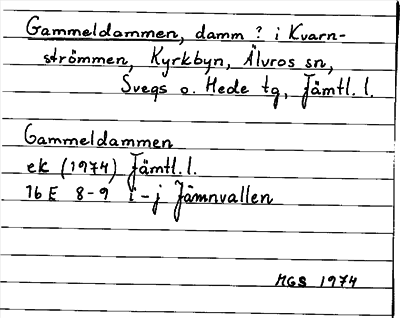 Gammeldammen, damm ? i Kvarn-
strömmen, Kyrkbyn, Älvros sn,
Svegs o. Hede tg, Jämtl. l.
Gammeldammen
ek (1974) Jämtl. l.
16 E 8-9 i-j Jämnvallen
MGS 1974